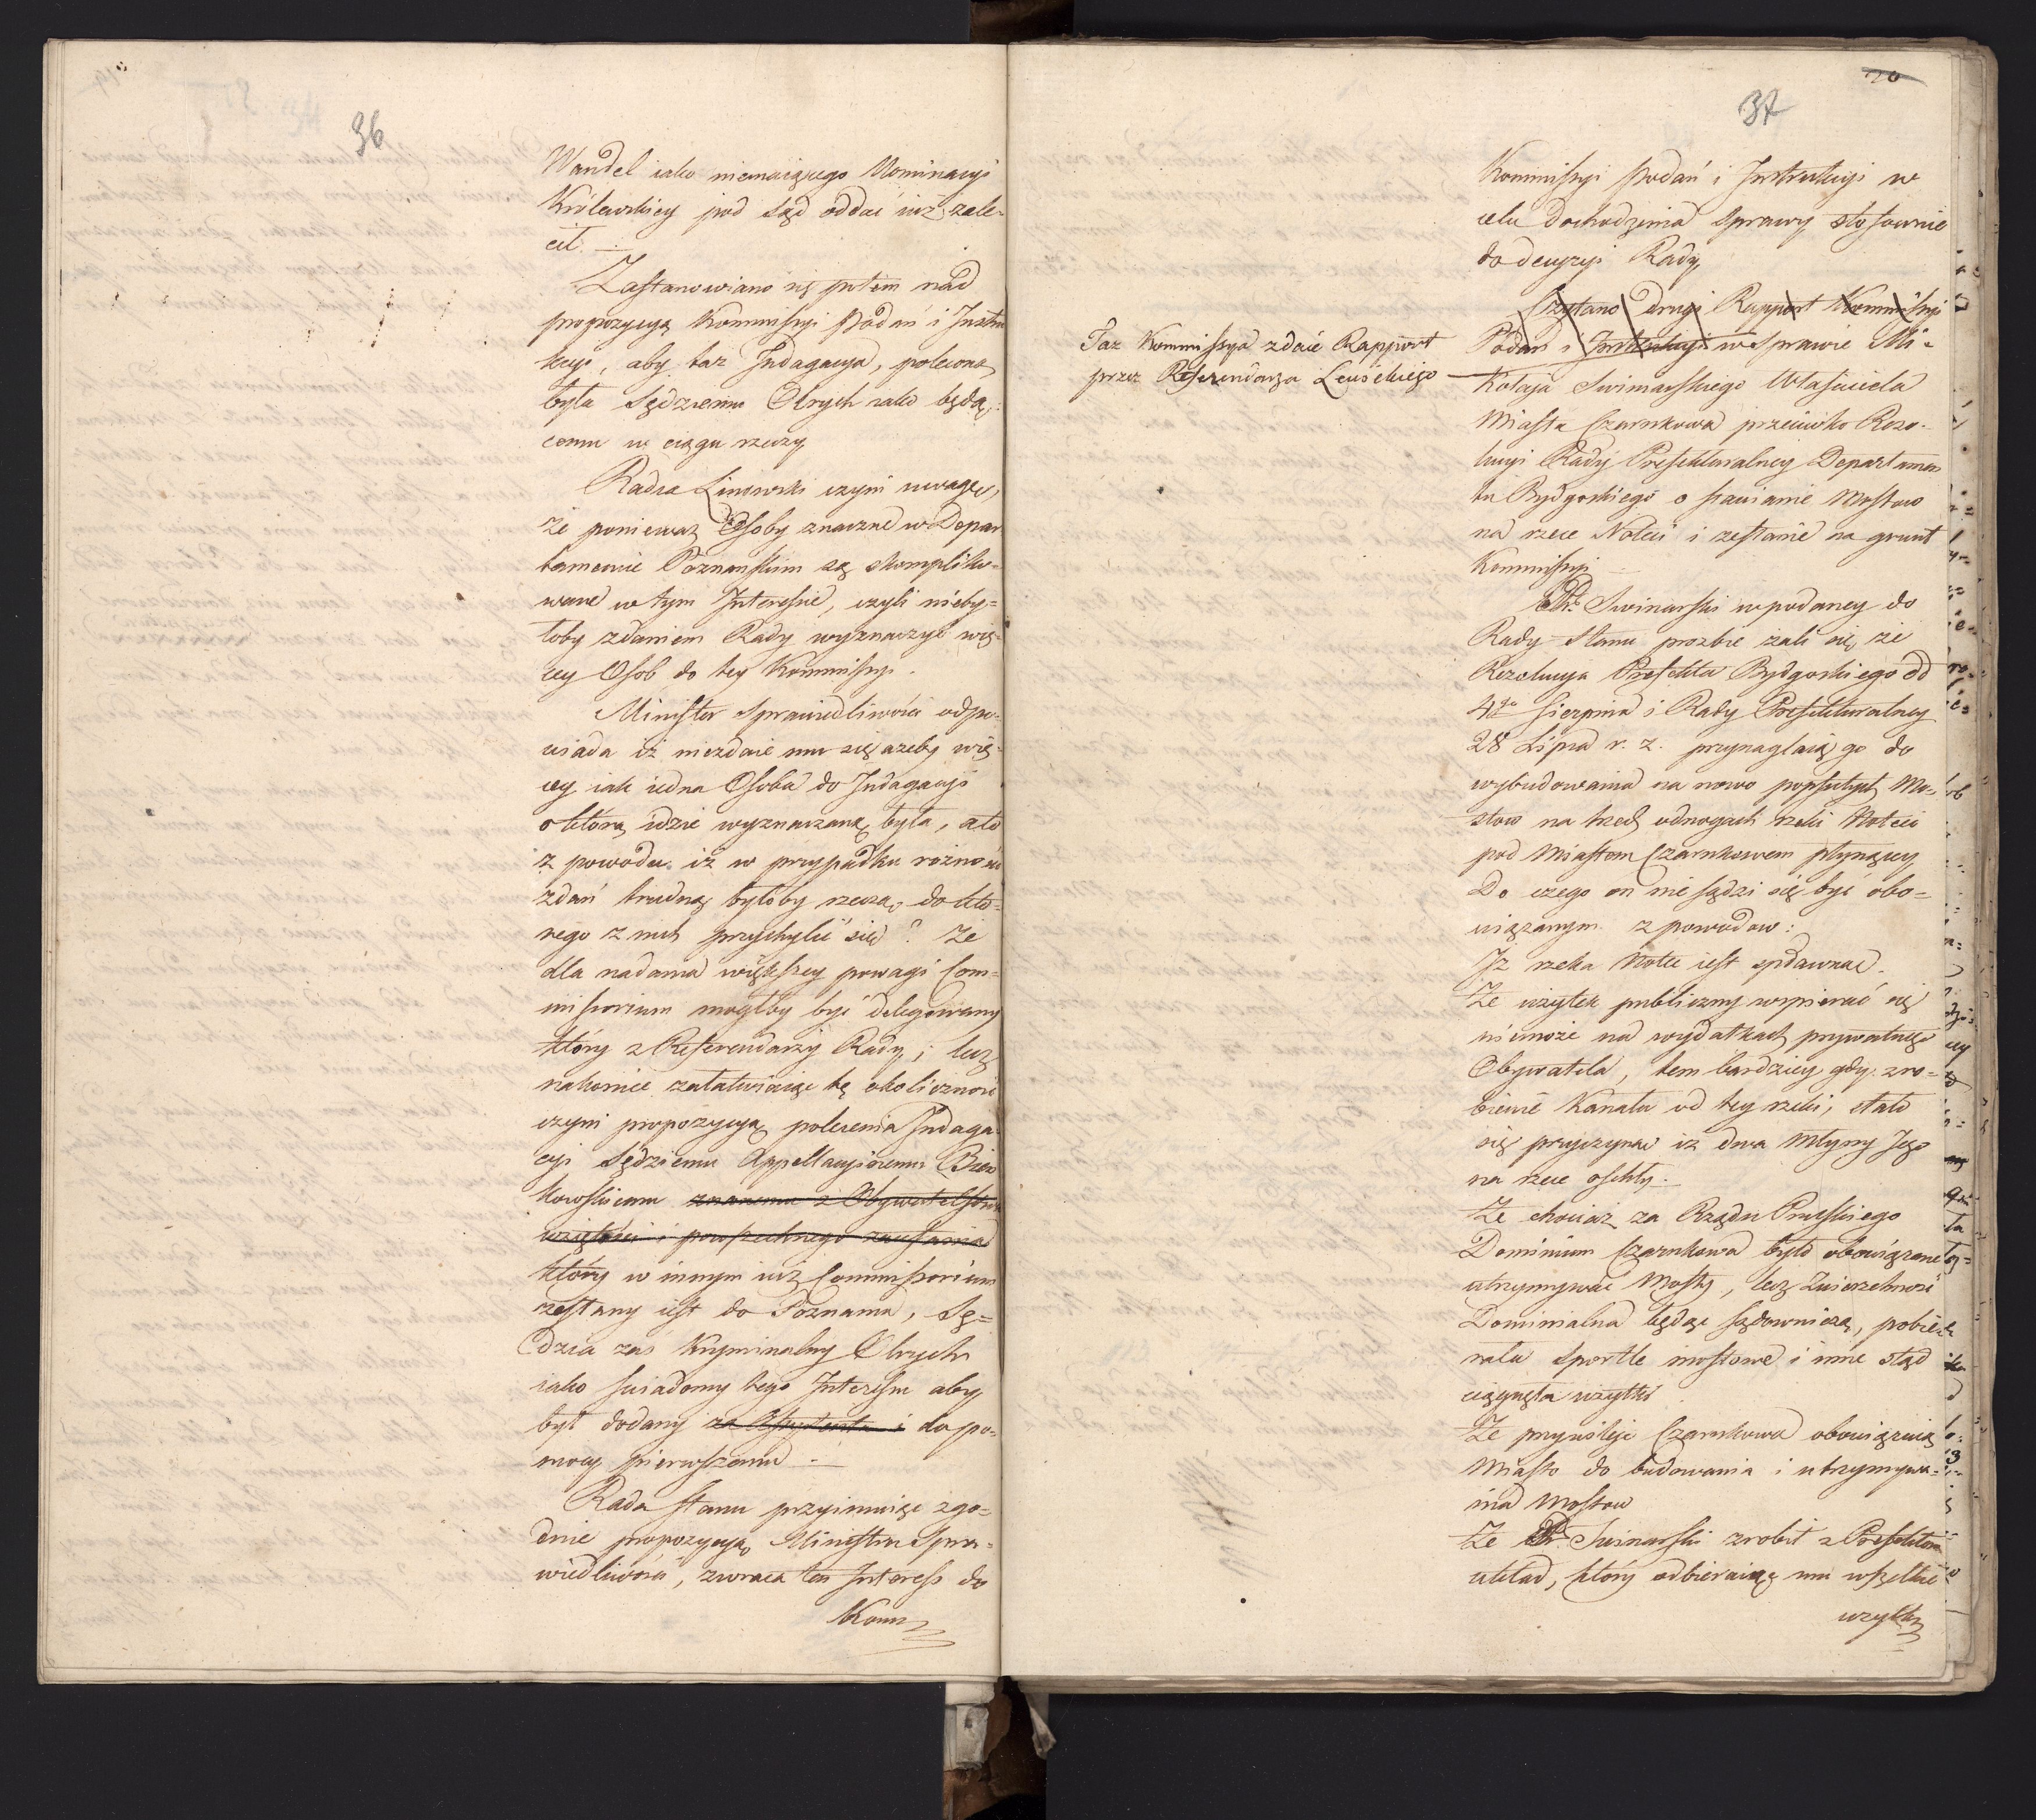 36
Wandel iako niemaiącego Nominacyi
Królewskiey pod Sąd oddać iuż zale-
cił.
Zastanowiano się potem nad
propozycyą Kommissyi Podań i Instru
kcyi, aby taż Indagacya, polecona
była Sędziemu Olrych iako będą-
cemu w ciągu rzeczy
Radca Linowski czyni uwagę,
że ponieważ Osoby znaczne w Depar
tamencie Poznańskim są skompliko-
wane w tym Interessie, czyli nieby-
łoby zdaniem Rady wyznaczyć wię-
cey Osob do tey Kommissyi.
Minister Sprawiedliwości odpo-
wiada iż niezdaie mu się ażeby wię-
cey iak iedna Osoba do Indagacyi
o którą idzie wyznaczaną była, a to
z powodu iż w przypadku rożności
zdań trudną byłoby rzeczą do któ-
rego z nich przychylić się? Że
dla nadania większey powagi Com-
missorium mogłby być delegowany
który z Referendarzy Rady; lecz
nakoniec załatwiaiąc tę okoliczność
czyni propozycyą polecenia Indaga-
cyi Sędziemu Appellacyinemu Bień
kowskiemu znanemu z Obywatelstwa
wziętości i powszechnego zaufania
który w innym iuż Commissorium
zesłany iest do Poznania, Sę-
dzia zaś Kryminalny Olrych
iako świadomy tego Interessu aby
był dodany za Assystenta i do po-
mocy pierwszemu
Rada Stanu przyimuiąc zgo-
dnie propozycyą Ministra Spra-
wiedliwości, zwraca ten Interess do
Kom
20
37
Kommissyi Podań i Instrukcyi w
celu dochodzenia Sprawy stosownie
do decyzyi Rady
Czytano drugi Rapport Kommissyi
Taż Kommissya zdaie Rapport
przez Referendarza
Podań i Instrukcyi w Sprawie Mi-
kołaja Swinarskiego Właściciela
Miasta Czarnkowa przeciwko Rezo-
lucyi Rady Prefekturalney Departamen
tu Bydgoskiego o stawianie Mostow
na rzece Noteci i zesłanie na grunt
Kommissyi
Pr. Swinarski w podaney do
Rady Stanu prozbie żali się że
Rezolucya Prefekta Bydgoskiego od
4go Sierpnia i Rady Prefekturalney
28 Lipca r. z. przynaglaią go do
wybudowania na nowo popsutych Mo-
stow na trzech odnogach rzeki Noteci
pod Miastem Czarnkowem płynącey
Do czego on nie sądzi się być obo-
wiązanym z powodow:
Iż rzeka Noteć iest spławna.
Że użytek publiczny wspierać się
niemoże na wydatkach prywatnego
Obywatela, tem bardziey gdy zro-
bienie Kanału od tey rzeki, stało
się przyczyną iż dwa Młyny Jego
na rzece oschły.
Że chociaż za Rządu Pruskiego
Dominium Czarnkowa było obowiązane
utrzymywać Mosty, lecz Zwierzchność
Dominialna będąc Sądowniczą, pobie-
rała Sportle mostowe i inne stąd
ciągnęła użytki
Że przywileje Czarnkowa obowiązuią
Miasto do budowania i utrzymywa-
nia Mostow
Że Pr. Swinarski zrobił z Prefektem
układ, który odbieraiąc mu wszelkie
użytki